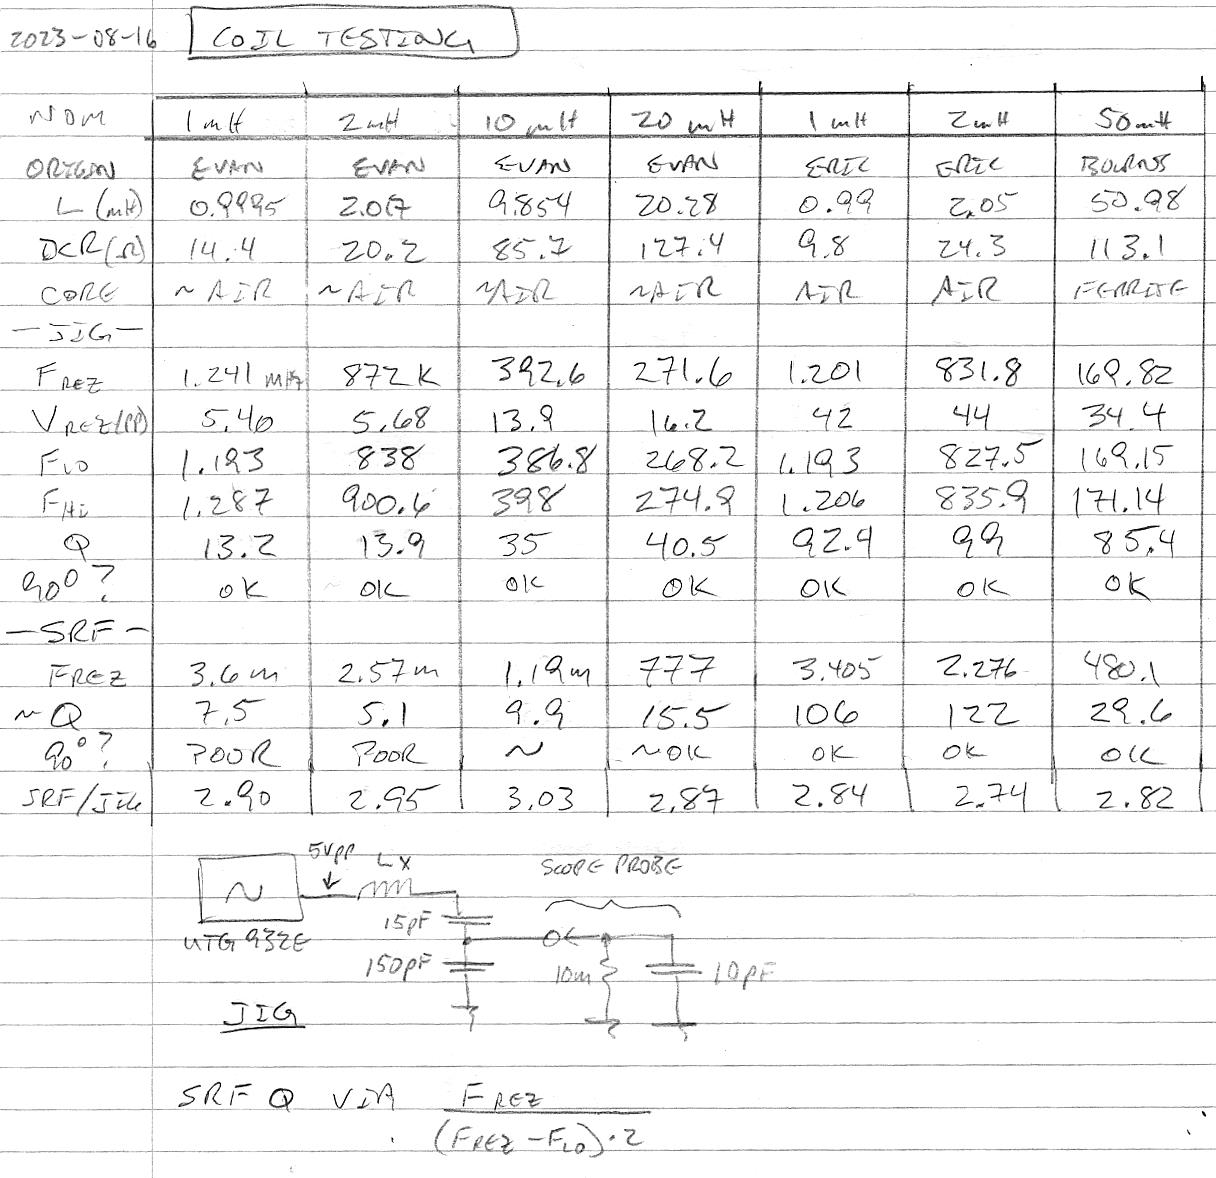 2023-08-16 COIL TESTING
NOM 1mH 2mH 10mH 20mH 1mH 2mH 50mH
ORIGIN EVAN EVAN EVAN EVAN ERIC ERIC BOURNS
L (mH) 0.9995 2.017 9.854 20.28 0.99 2.05 50.98
DCR(Ω) 14.4 20.2 85.7 127.4 9.8 24.3 113.1
CORE ~AIR ~AIR ~AIR ~AIR AIR AIR FERRITE
—JIG—
FREZ 1.241 MHz 872K 392.6 271.6 1.201 831.8 169.82
VREZ(PP) 5.40 5.68 13.9 16.2 42 44 34.4
FLO 1.193 838 386.8 268.2 1.193 827.5 169.15
FHi 1.287 900.6 398 274.9 1.206 835.9 171.14
Q 13.2 13.9 35 40.5 92.4 99 85.4
90°? OK OK OK OK OK OK OK
—SRF—
FREZ 3.6m 2.57m 1.19m 777 3.405 2.276 480.1
~Q 7.5 5.1 9.9 15.5 106 122 29.6
90°? POOR POOR ~ ~OK OK OK OK
SRF/JIG 2.90 2.95 3.03 2.87 2.84 2.74 2.82
5VPP LX SCOPE PROBE
~
15pF
UTG932E
150pF 10m 10pF
JIG
SRF Q VIA FREZ
(FREZ - FLO)·2